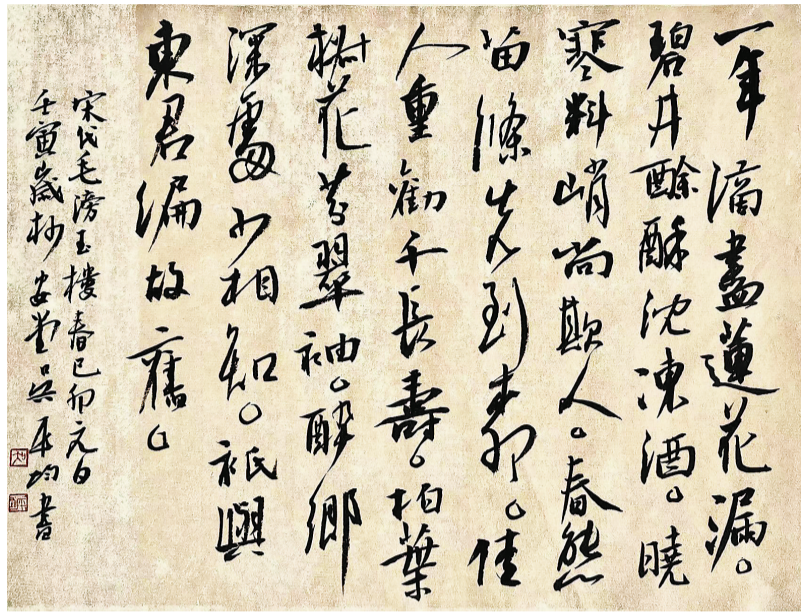 一年滴盡蓮花漏。
碧井酴酥沈凍酒。曉
寒料峭尚欺人。春態
苗條先到柳。佳
人重勸千長壽。柏葉
椒花芬翠袖。醉鄉
深處少相知。祇與
東君偏故舊。
宋代毛滂玉樓春己卯元日
壬寅歲杪 堂吳 均書